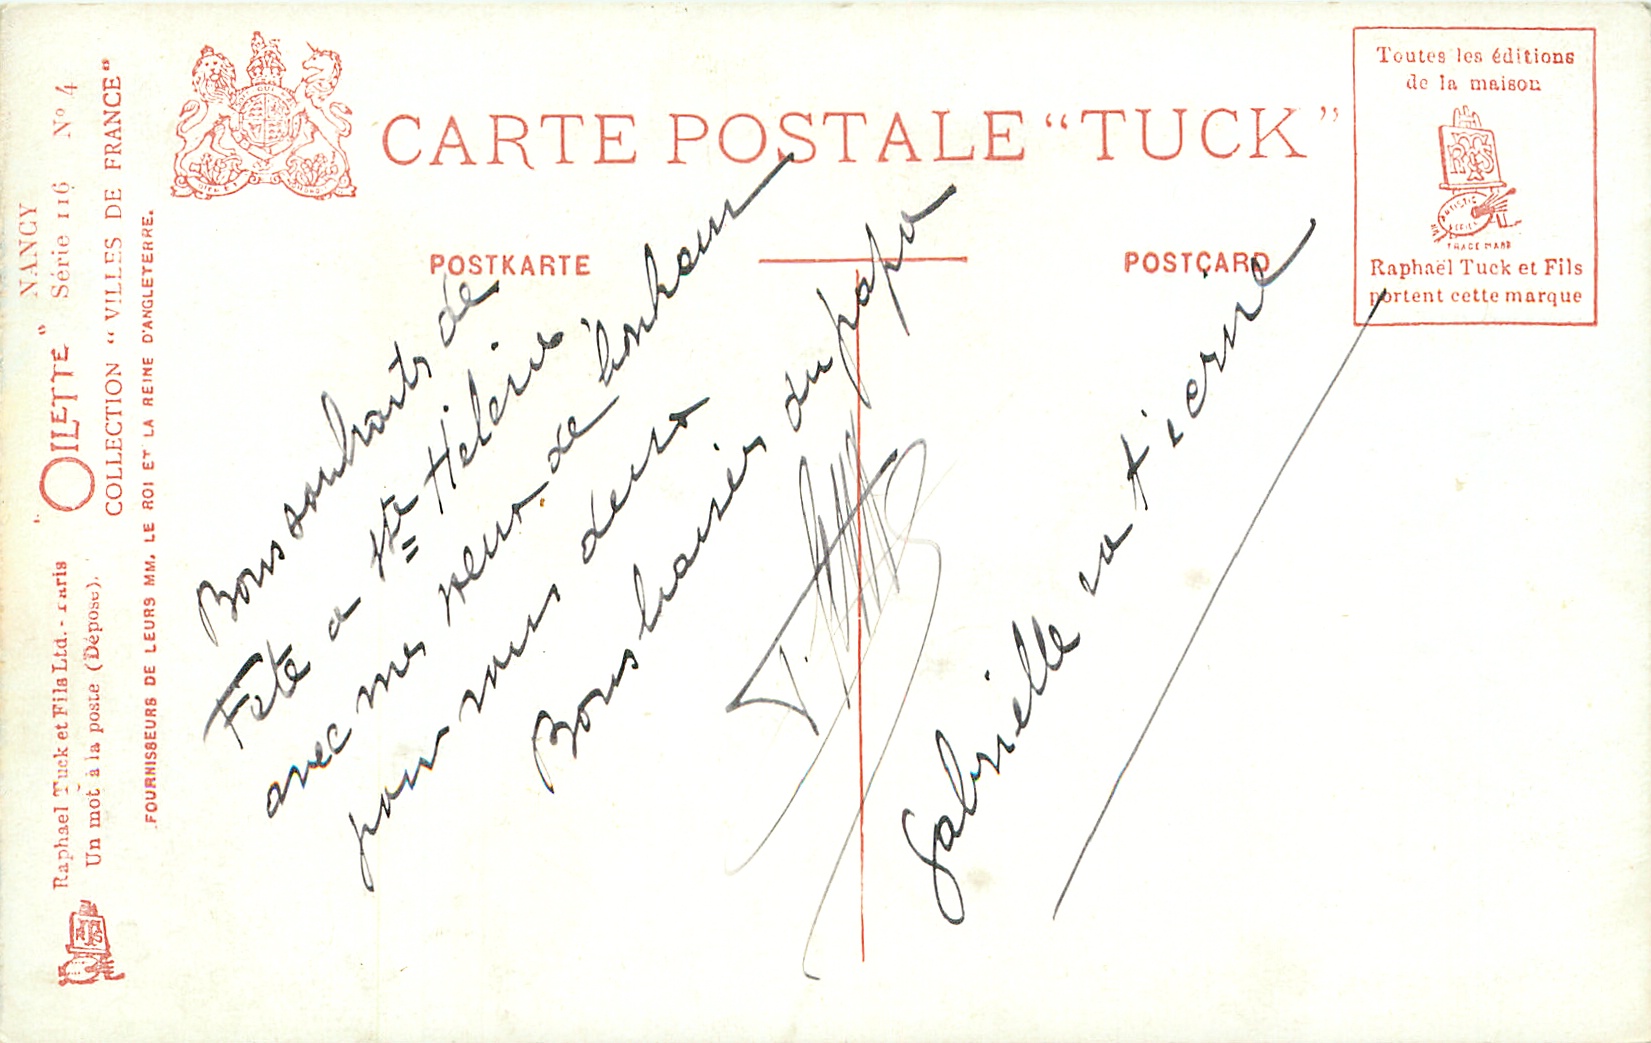 CARTE POSTALE “TUCK”
POSTKARTE
POSTCARD
Toutes les éditions
de la maison
ARTISTIC
SERIES
TRADE MARK
Raphaël Tuck et Fils
portent cette marque
NANCY
"OILETTE" Série 116 Nº 4
COLLECTION “VILLES DE FRANCE”
Raphael Tuck et Fils Ltd. - Paris
Un mot à la poste (Déposé).
FOURNISSEURS DE LEURS MM. LE ROI ET LA REINE D'ANGLETERRE.
Bons souhaits de
Fête a Ste
avec mes veux de bonheur
pour vous deux
Bons baisers du papa
Gabrielle va tierne